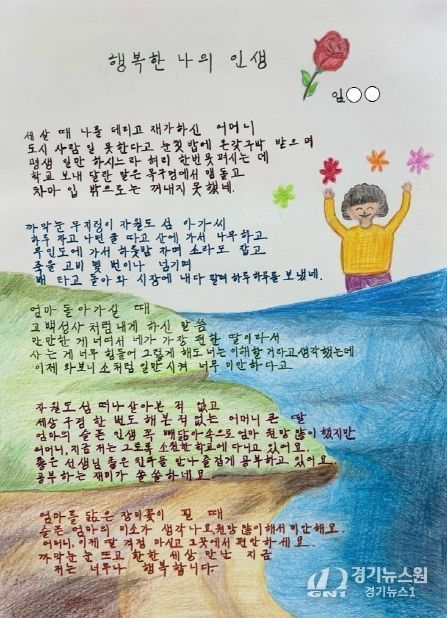 행복한 나의 인생
임○○
세살 때 나를 데리고 재가하신 어머니
도시 사람 일 못한다고 눈칫밥에 온갖구박 받으며
평생 일만 하시느라 허리 한번 못 펴시는 데
학교 보내 달란 말은 목구멍에서 맴돌고
차마 입 밖으로는 꺼내지 못했네.
까막눈 무지렁이 자월도 섬 아가씨
하루 자고 나면 굴 따고 산에 가서 나무하고
무인도에 가서 하룻밤 자며 소라도 잡고
죽을 고비 몇 번이나 넘기며
배 타고 돌아와 시장에 내다 팔며 하루하루를 보냈네.
엄마 돌아가실 때
고백성사 처럼 내게 하신 말씀
만만한 게 너여서 네가 가장 편한 딸이라서
사는 게 너무 힘들어 그렇게 해도 너는 이해할 거라고 생각했는데
이제 와보니 소처럼 일만 시켜 너무 미안하다고
자월도 섬 떠나 살아본 적 없고
세상 구경 한 번도 해본 적 없는 어머니 큰 딸
엄마의 슬픈 인생 꼭 빼닮아 속으로 엄마 원망 많이 했지만
어머니, 지금 저는 그토록 소원한 학교에 다니고 있어요.
좋은 선생님 좋은 친구를 만나 즐겁게 공부하고 있어요.
공부하는 재미가 쏠쏠하네요.
엄마를 닮은 장미꽃이 필 때
슬픈 엄마의 미소가 생각나요 원망 많이해서 미안해요.
어머니, 이제 딸 걱정 마시고 그곳에서 편안하세요.
까막눈 뜨고 환한 세상 만난 지금
저는 너무나 행복합니다.
GN1 경기뉴스원
경기뉴스1